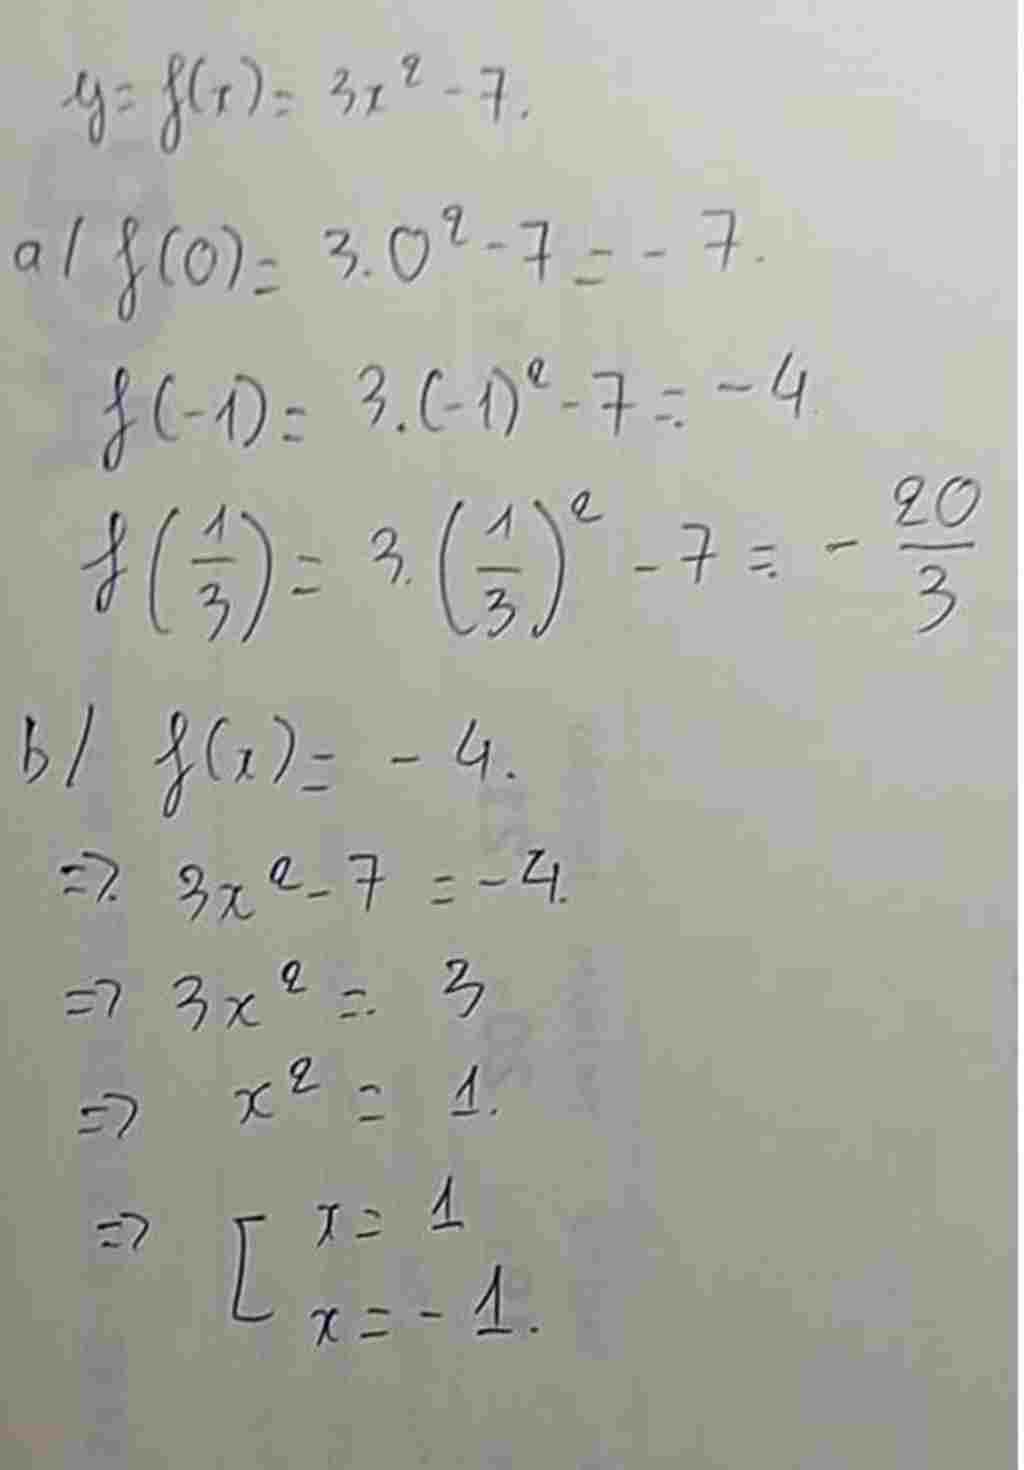 y = f(x) = 3x² - 7.
a/ f(0) = 3.0² - 7 = - 7.
f(-1) = 3.(-1)² - 7 = - 4
f(1/3) = 3.(1/3)² - 7 = - 20/3
b/ f(x) = - 4.
=> 3x² - 7 = - 4.
=> 3x² = 3
=> x² = 1.
=> [ x = 1
x = - 1.